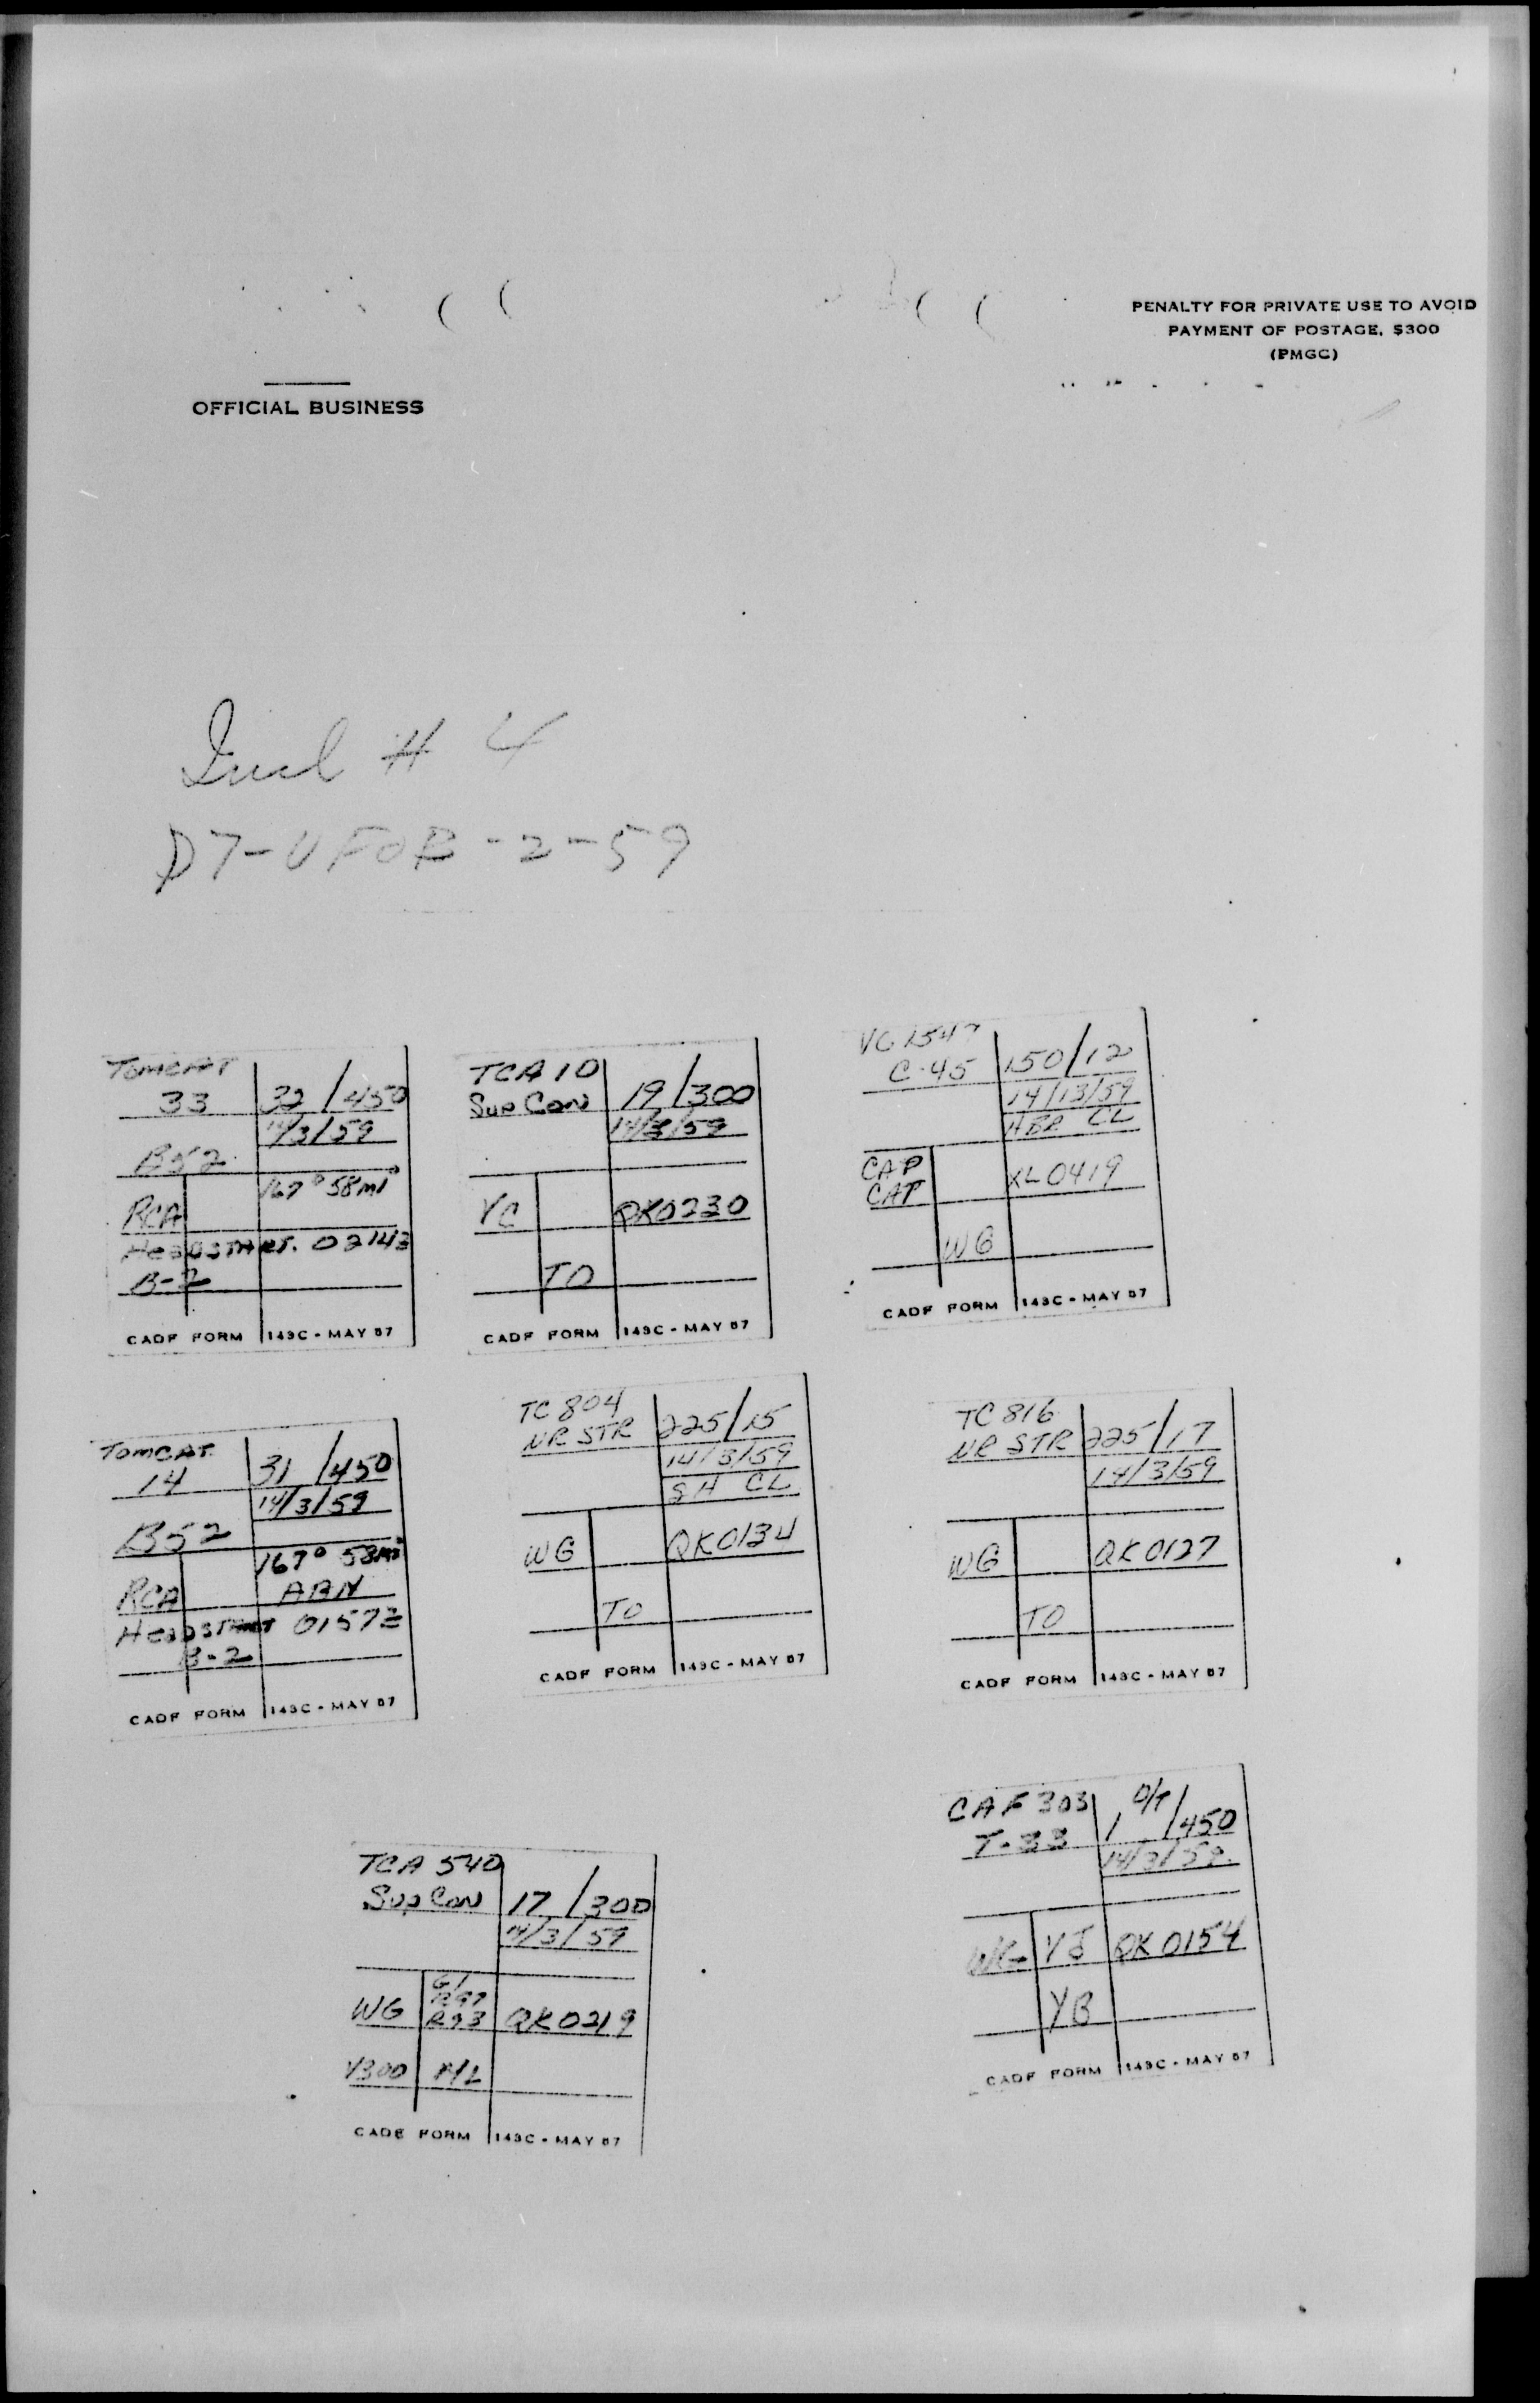 PENALTY FOR PRIVATE USE TO AVOID
PAYMENT OF POSTAGE, $300
(PMGC)
OFFICIAL BUSINESS
Incl # 4
D7-UFOB-2-59
TOMCAT
33 32/450
14/3/59
B52
167° 58mi
RCA
HEADSTART. 0214Z
B-2
CADF FORM 143C - MAY 57
TCA 10
Sup Con 19/300
14/3/59
YC QK0230
TO
CADF FORM 143C - MAY 57
C-45 150/12
14/13/59
HBR CL
CAP
CAP XL0419
WG
CADF FORM 143C - MAY 57
TOMCAT
14 31/450
14/3/59
B52
167° 58mi
RCA ABN
HEADSTART 0157Z
B-2
CADF FORM 143C - MAY 57
TC 804
NR STR 225/15
14/3/59
SH CL
WG QK0134
TO
CADF FORM 143C - MAY 57
TC 816
NR STR 225/17
14/3/59
WG QK0127
TO
CADF FORM 143C - MAY 57
TCA 540
Sup Con 17/300
14/3/59
G1
R97
R93
WG QK0219
V300
CADF FORM 143C - MAY 57
CAF 303 O/T
T-33 1/450
14/3/59
WG YJ QK0154
YB
CADF FORM 143C - MAY 57